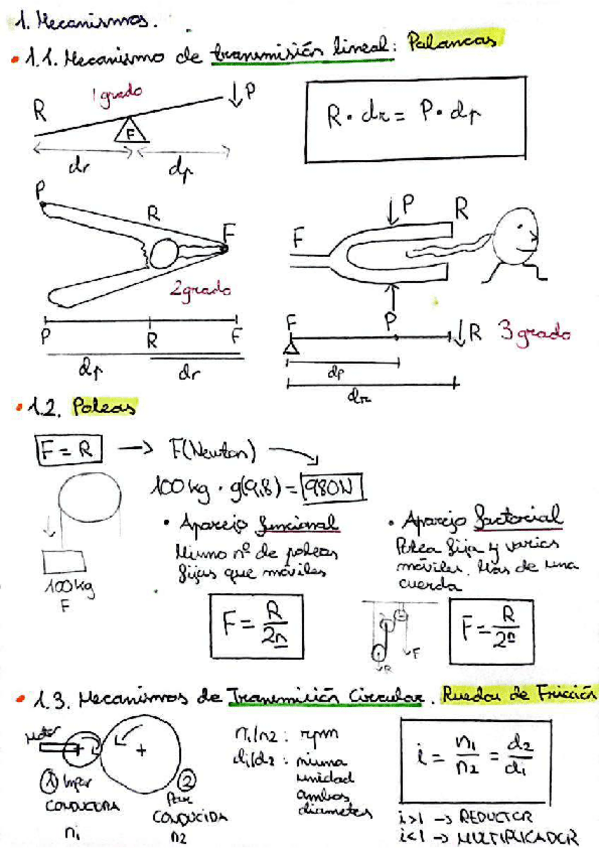 1. Mecanismos.
• 1.1. Mecanismo de transmisión lineal: Palancas
1 grado
R
P
F
dr
dp
R · dr = P · dp
P
R
F
2 grado
P
R
F
dp
dr
F
P
R
F
P
R
3 grado
dp
dr
• 1.2. Poleas
F = R → F(Newton)
100 kg · g(9,8) = 980N
100 kg
F
• Aparejo funcional
Mismo nº de poleas
fijas que móviles
F = R / 2n
• Aparejo factorial
Polea fija y varias
móviles. Mas de una
cuerda.
R
F
F = R / 2ⁿ
• 1.3. Mecanismos de Transmisión Circular. Ruedas de Fricción
Motor
① Impar
CONDUCTORA
n1
② Par
CONDUCIDA
n2
n1/n2 : rpm
d1/d2 : misma
unidad
ambos
diametros
i = n1/n2 = d2/d1
i>1 → REDUCTOR
i<1 → MULTIPLICADOR